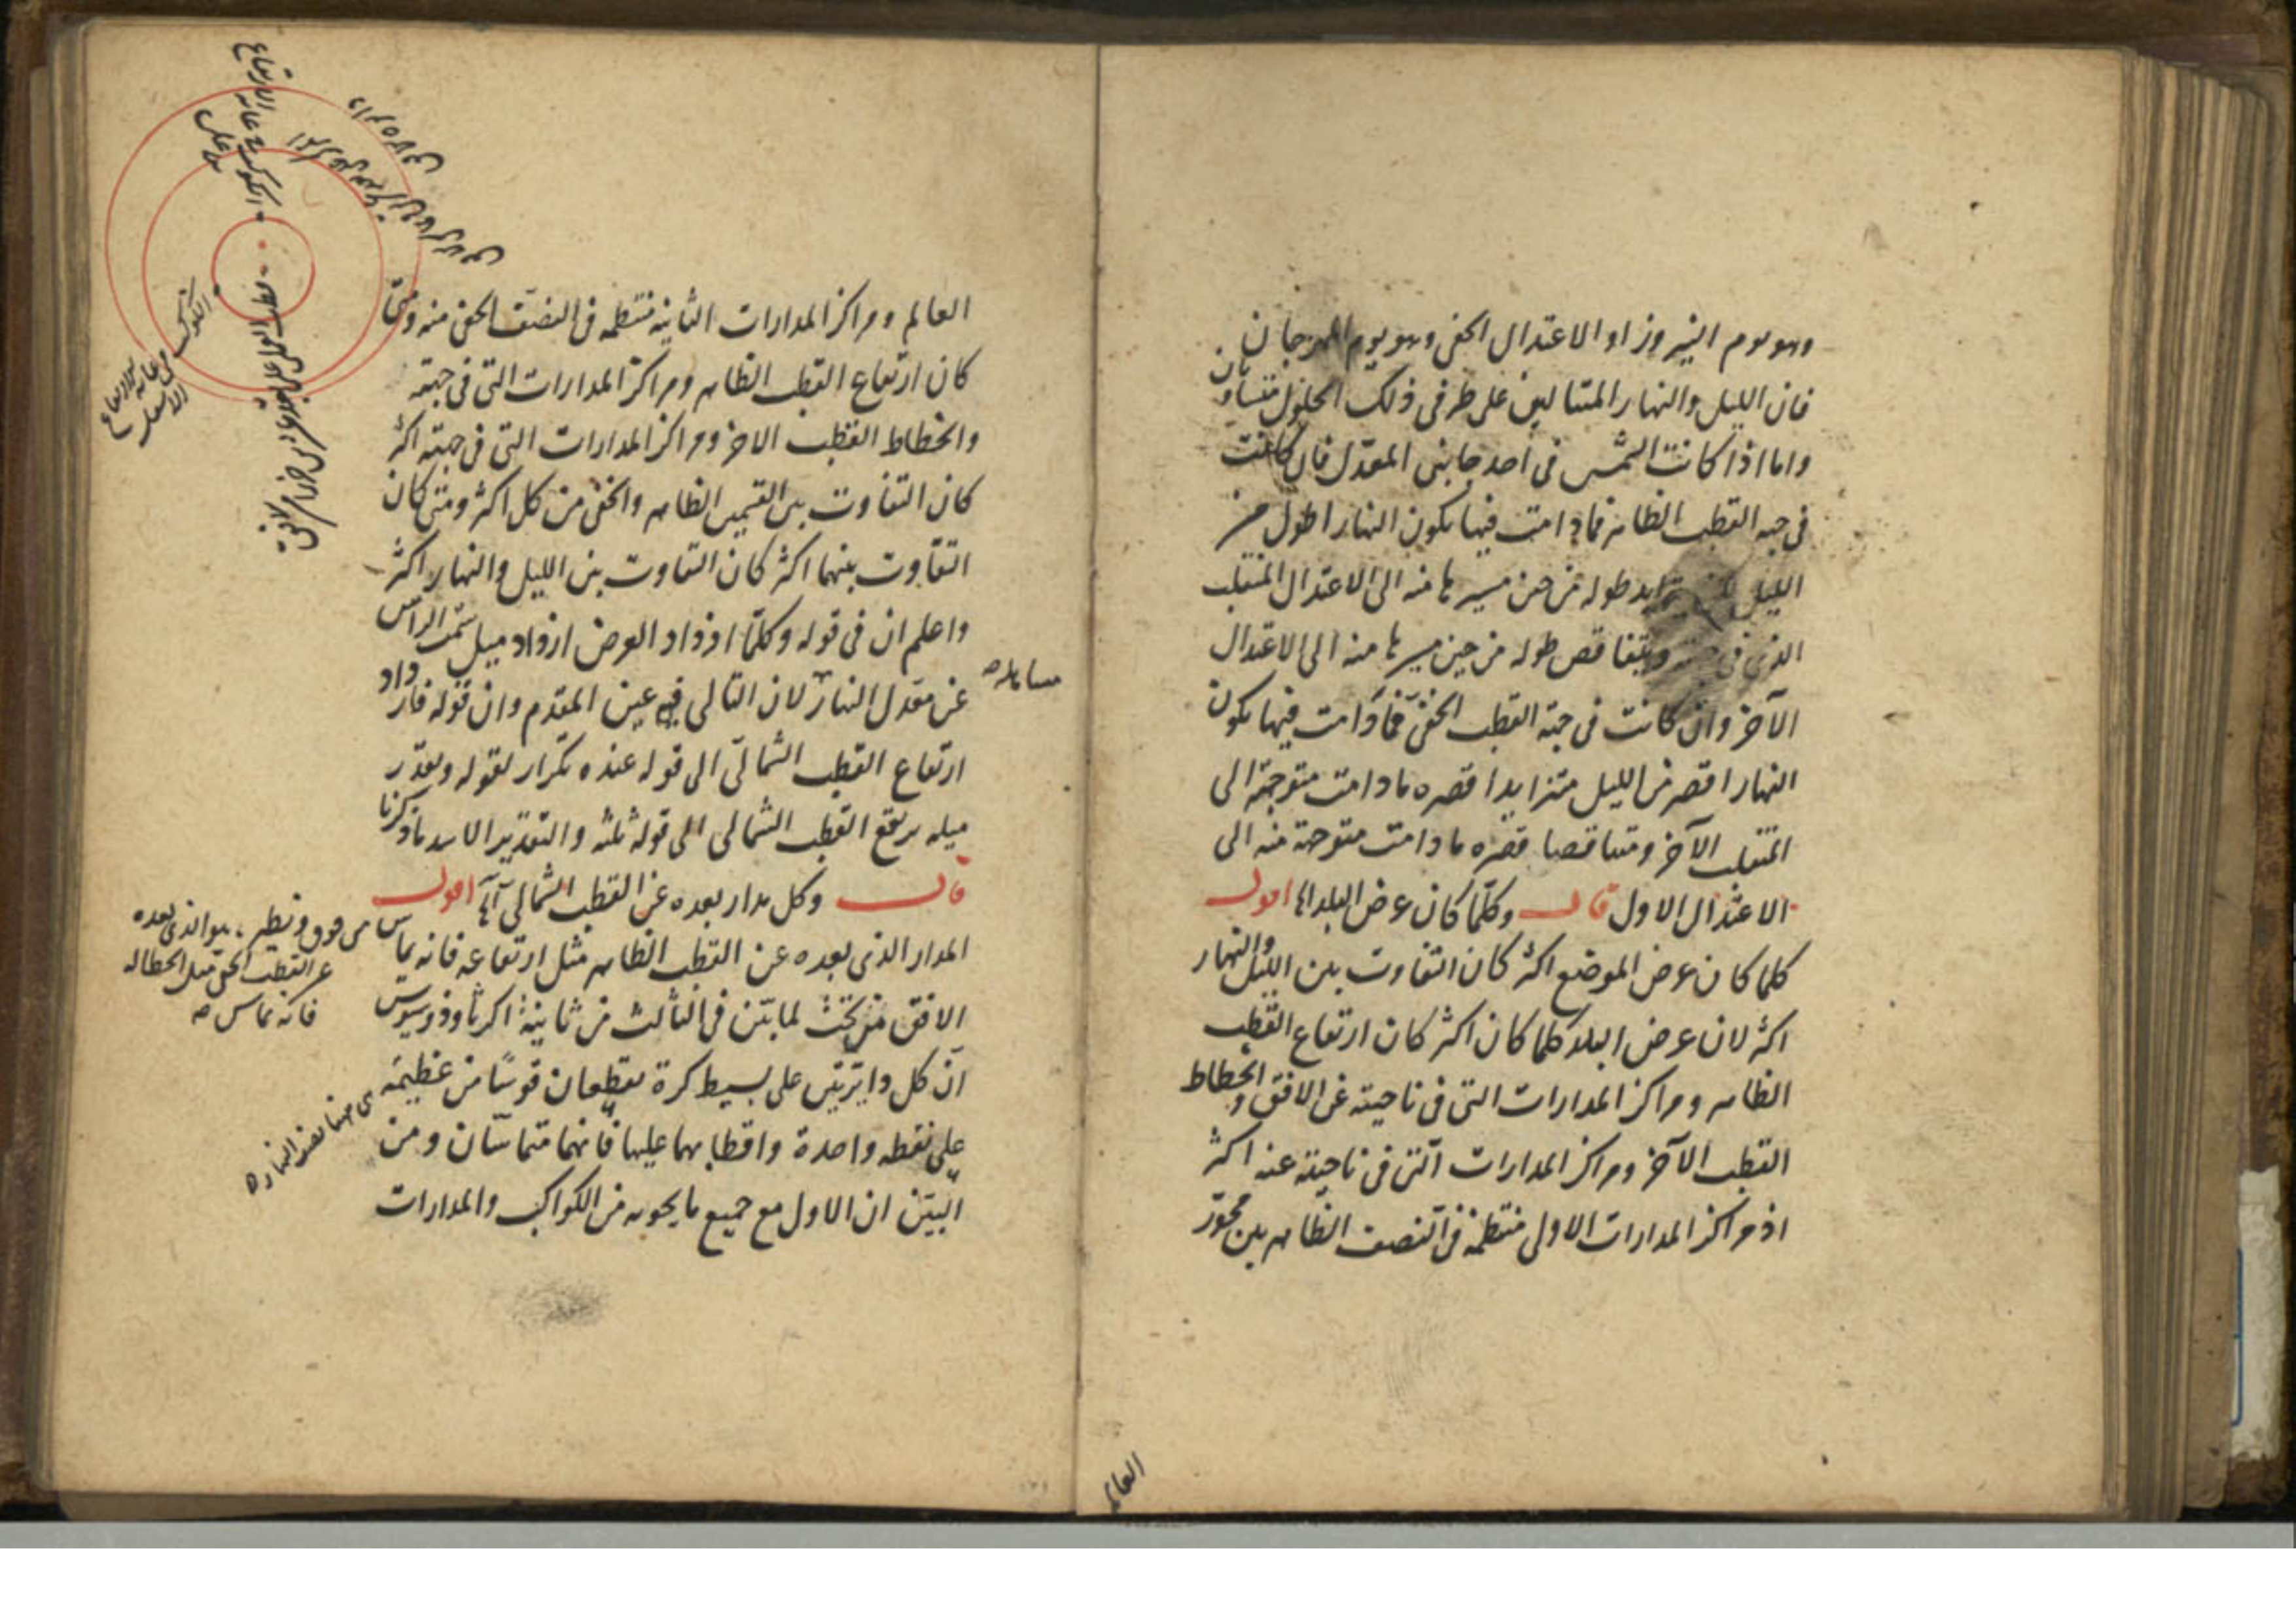 وهو يوم النيروز او الاعتدال الخفى وهو يوم المهرجان
فان الليل والنهار المتتاليين على طرفى ذلك الحلول متساويان
واما اذا كانت الشمس فى احد جانبى المعدل فان كانت
فى جهة القطب الظاهر فمادامت فيها يكون النهار اطول من
الليل يتزايد طوله من حين مسيرها منه الى الاعتدال المنقلب
الذى فى ويتناقص طوله من حين مسيرها منه الى الاعتدال
الآخر وان كانت فى جهة القطب الخفى فمادامت فيها يكون
النهار اقصر من الليل متزايدا قصره مادامت متوجهة الى
المنقلب الآخر ومتناقصا قصره مادامت متوجهة منه الى
الاعتدال الاول قال وكلما كان عرض البلد اه اقول
كلما كان عرض الموضع اكثر كان التفاوت بين الليل والنهار
اكثر لان عرض البلد كلما كان اكثر كان ارتفاع القطب
الظاهر ومراكز المدارات التى فى ناحيته عن الافق وانحطاط
القطب الآخر ومراكز المدارات التى فى ناحيته عنه اكثر
اذ مراكز المدارات الاولى منتظمة فى النصف الظاهر من محور
العالم
العالم ومراكز المدارات الثانية منتظمة فى النصف الخفى منه ومتى
كان ارتفاع القطب الظاهر ومراكز المدارات التى فى جهته
وانحطاط القطب الاخر ومراكز المدارات التى فى جهته اكثر
كان التفاوت بين القسمين الظاهر والخفى من كل اكثر ومتى كان
التفاوت بينهما اكثر كان التفاوت بين الليل والنهار اكثر
واعلم ان فى قوله وكلما ازداد العرض ازداد ميل سمت الراس
عن معدل النهار لان التالى فيه عين المقدم وان قوله فازداد
ارتفاع القطب الشمالى الى قوله عنده تكرار لقوله وبقدر
ميله يرتفع القطب الشمالى الى قوله ثلثه والتقدير الاسد ماذكرنا
قال وكل مدار بعده عن القطب الشمالى اه اقول
المدار الذى بعده عن القطب الظاهر مثل ارتفاعه فانه يماس
الافق من تحت لما بين فى الثالث من ثانية اكرثاوذوسيوس
ان كل دايرتين على بسيط كرة يقطعان قوسا من عظيمة
على نقطه واحدة واقطابهما عليها فانهما متماستان ومن
البين ان الاول مع جميع ما يحويه من الكواكب والمدارات
من فوق ونظيره هو الذى بعده
عن القطب الخفى مثل انحطاطه
فانه يماس
هى ههنا نصف النهار